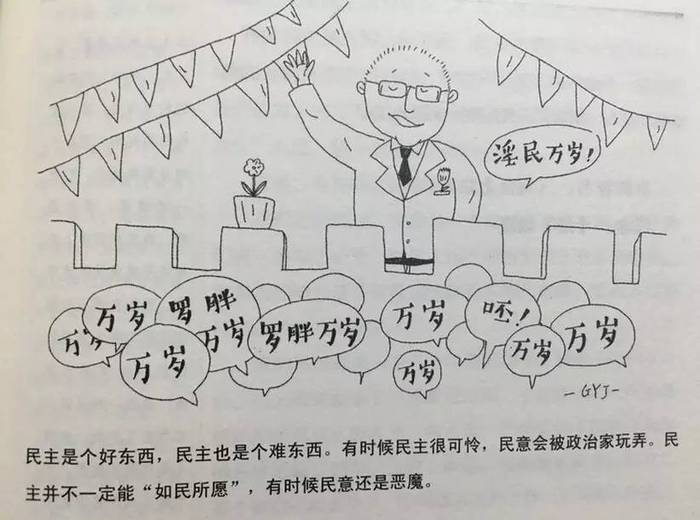 淫民万岁!
万岁
万岁
罗胖
万岁
万岁
罗胖万岁
万岁
万岁
呸!
万岁
万岁
-GYJ-
民主是个好东西，民主也是个难东西。有时候民主很可怜，民意会被政治家玩弄。民
主并不一定能“如民所愿”，有时候民意还是恶魔。